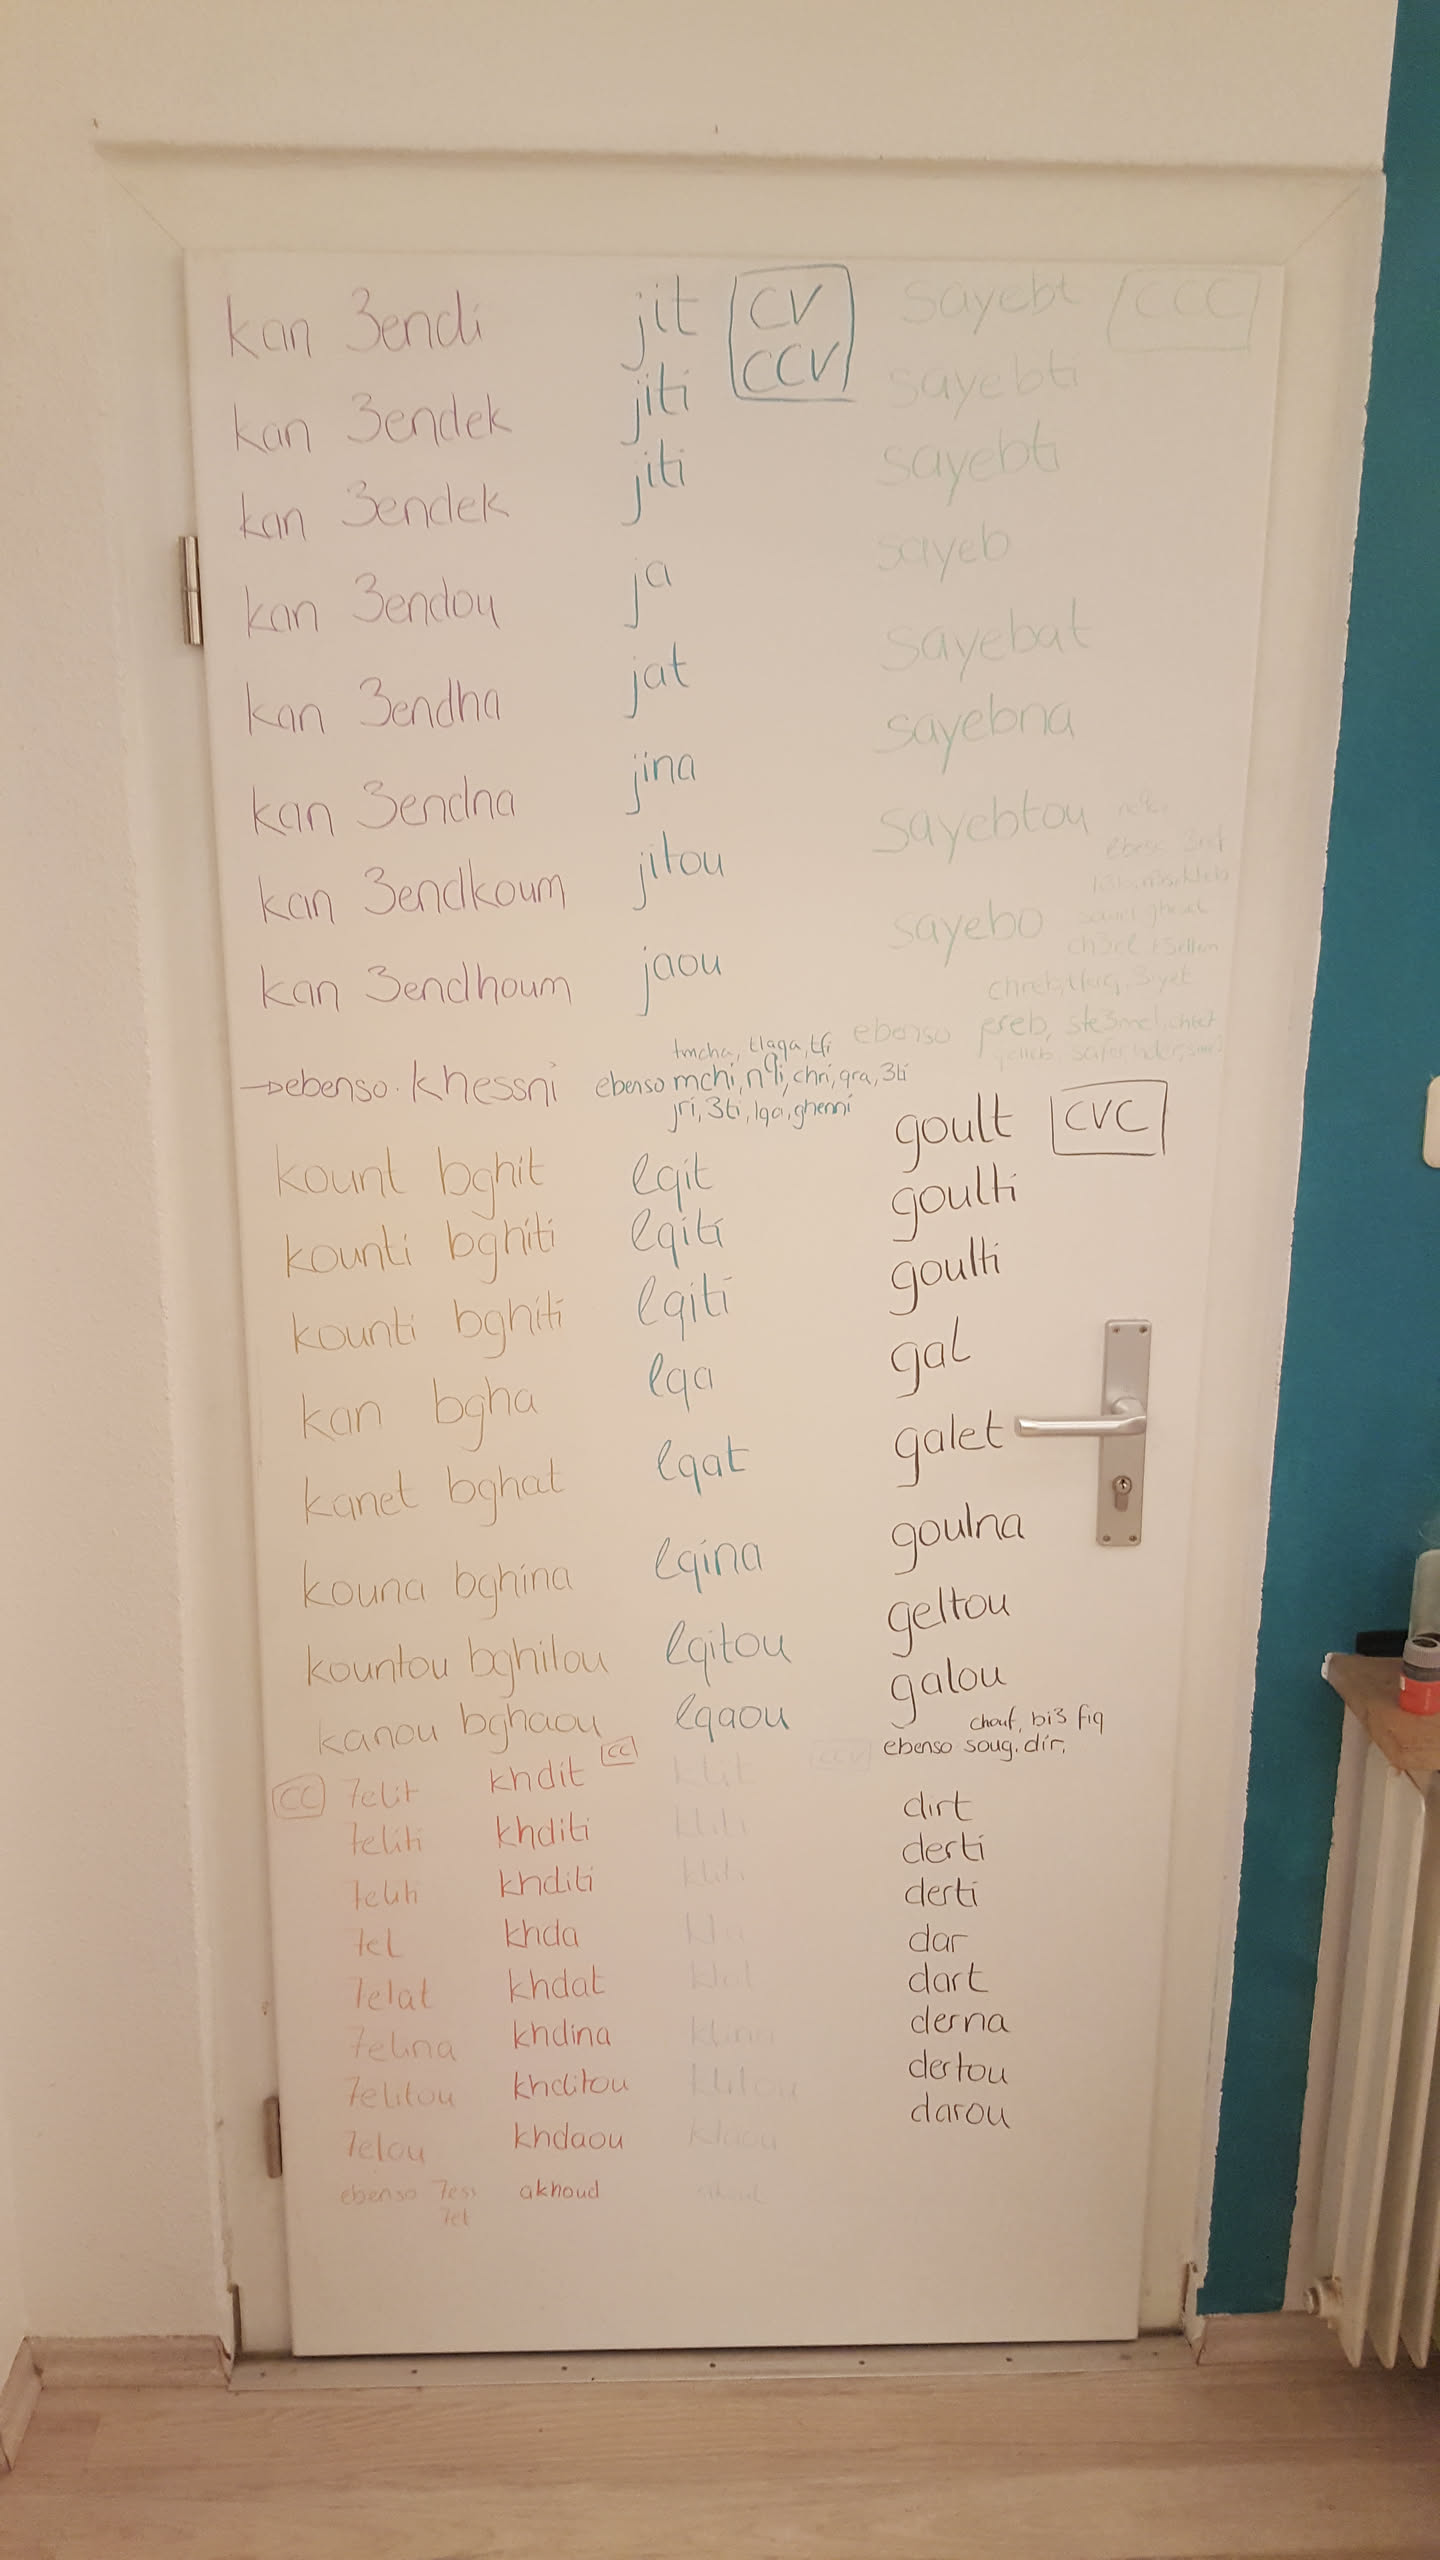 kan 3endi
kan 3endek
kan 3endek
kan 3endou
kan 3endha
kan 3endna
kan 3endkoum
kan 3endhoum
→ebenso. khessni
kount bghit
kounti bghiti
kounti bghiti
kan bgha
kanet bghat
kouna bghina
kountou bghitou
kanou bghaou
CC
7elit
7eliti
7eliti
7el
7elat
7elina
7elitou
7elou
ebenso 7ess
7et
jit
CV
CCV
jiti
jiti
ja
jat
jina
jitou
jaou
tmcha, tlaqa, tfi
ebenso mchi, n9i, chri, qra, 3ti
jri, 3ti, lqa, ghenni
lqit
lqiti
lqiti
lqa
lqat
lqina
lqitou
lqaou
CC
khdit
khditi
khditi
khda
khdat
khdina
khditou
khdaou
akhoud
klit
kliti
kliti
kla
klat
klina
klitou
klaou
sayebt
CCC
sayebti
sayebti
sayeb
sayebat
sayebna
sayebtou
sayebo
ebenso
goult
CVC
goulti
goulti
gal
galet
goulna
geltou
galou
chouf, bi3 fiq
ebenso soug. dir,
dirt
derti
derti
dar
dart
derna
dertou
darou